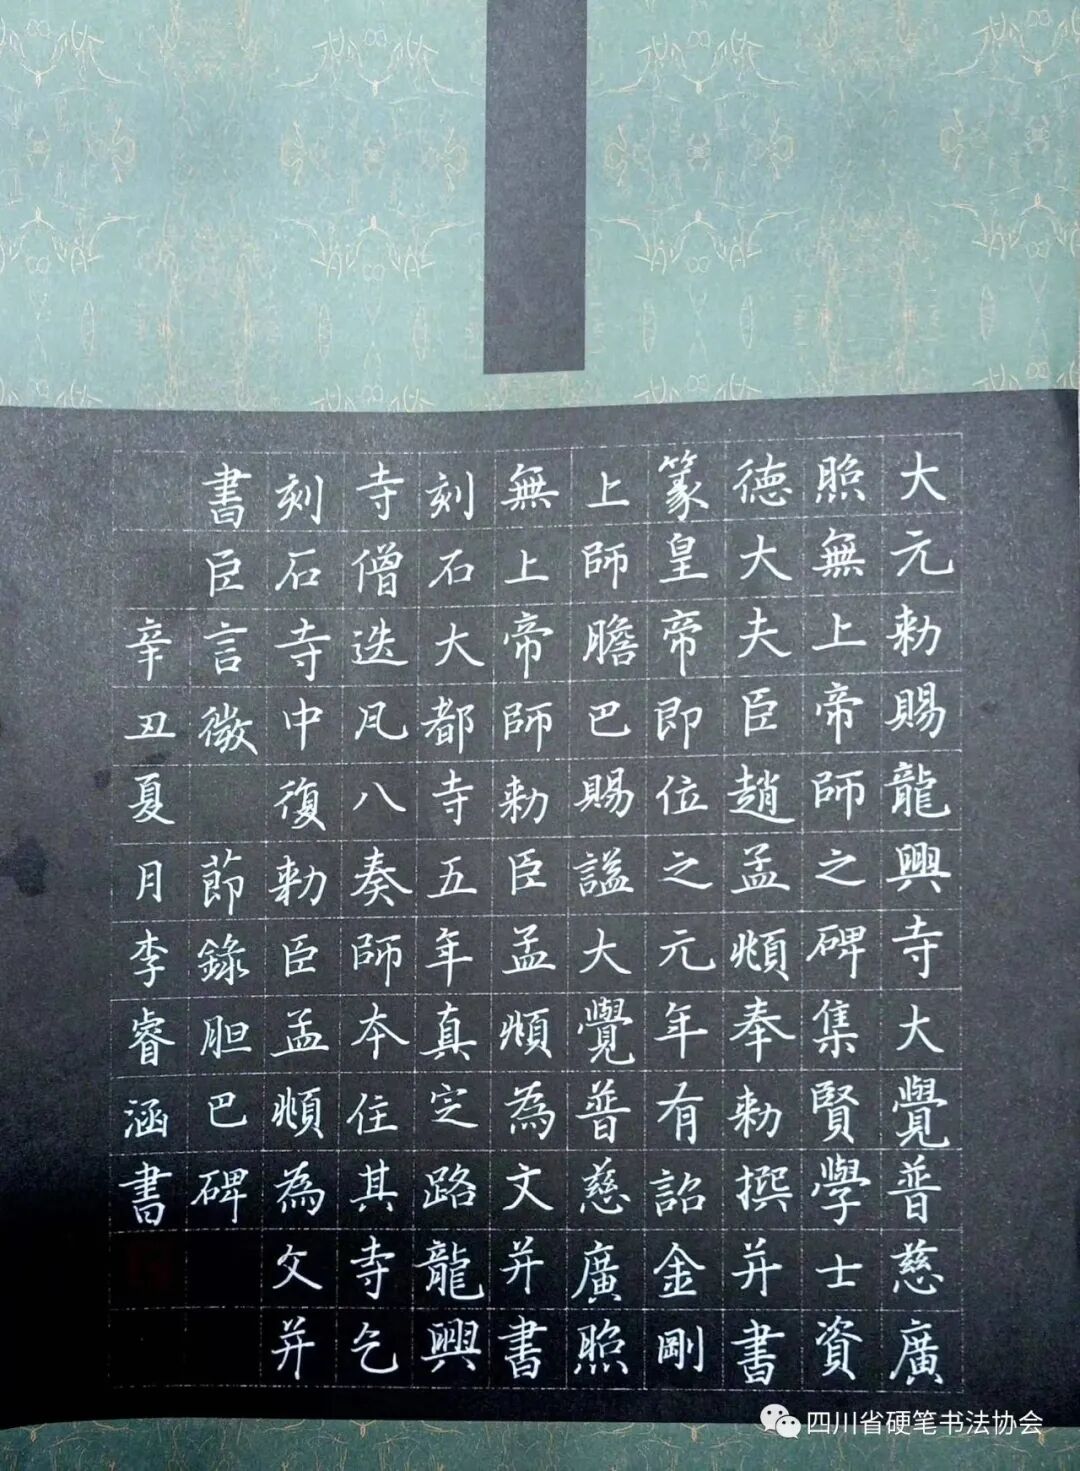 大元勑賜龍興寺大覺普慈廣
照無上帝師之碑集賢學士資
德大夫臣趙孟頫奉勑撰并書
篆皇帝即位之元年有詔金剛
上師膽巴賜謚大覺普慈廣照
無上帝師勑臣孟頫為文并書
刻石大都寺五年真定路龍興
寺僧迭凡八奏師本住其寺乞
刻石寺中復勑臣孟頫為文并
書臣言微 節錄胆巴碑
辛丑夏月李睿涵書
四川省硬笔书法协会